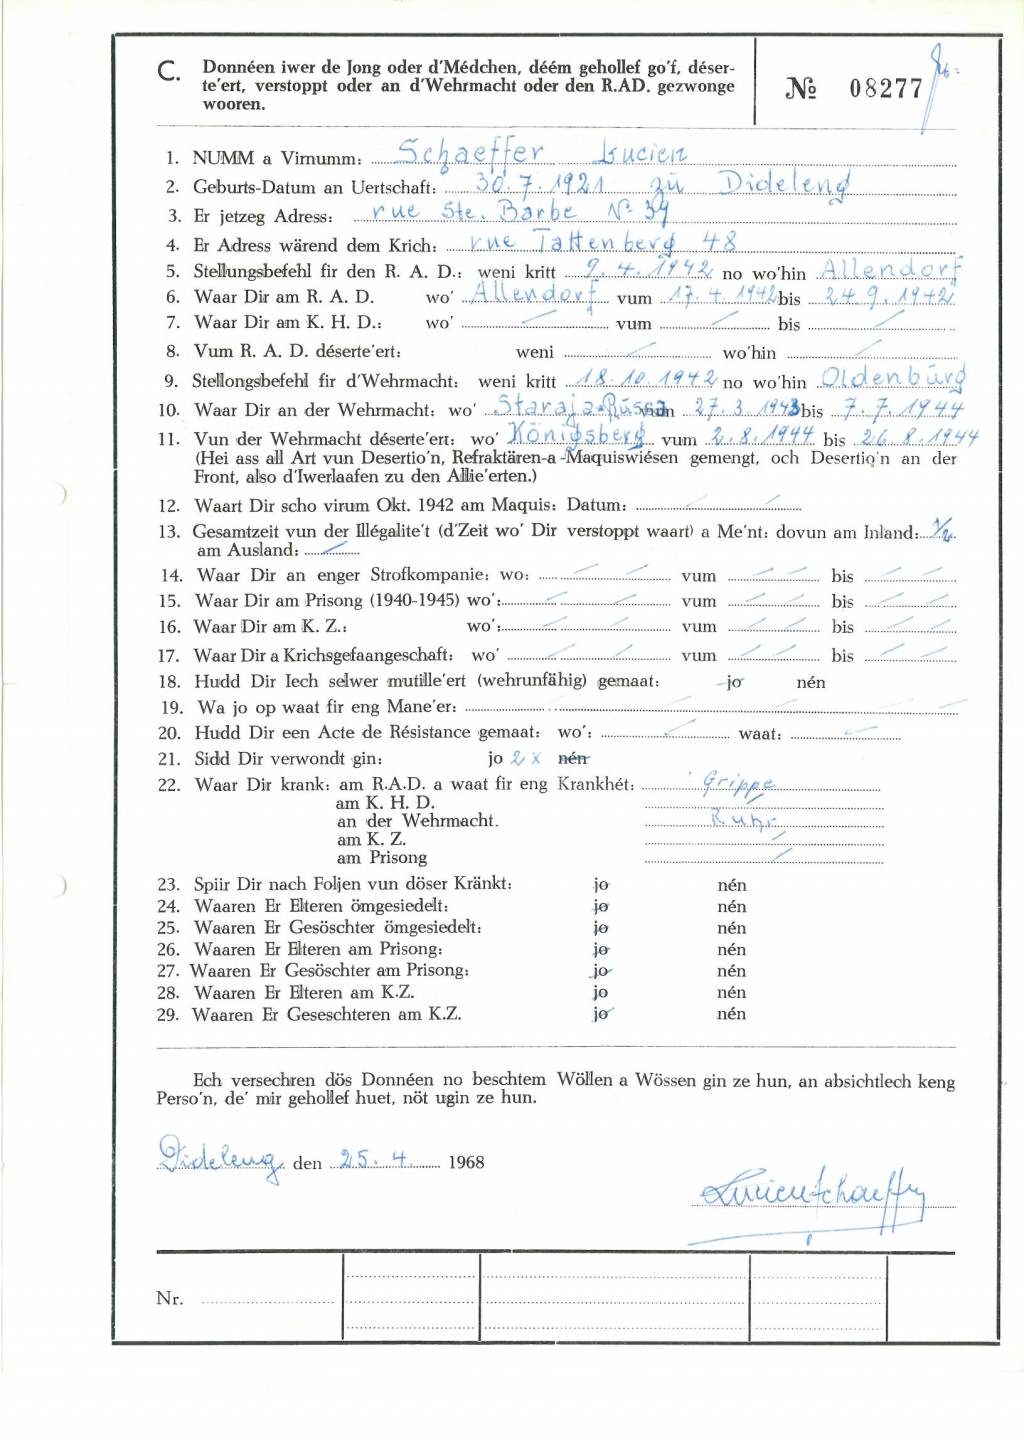 C. Donnéen iwer de Jong oder d'Médchen, déém gehollef go'f, déser-
te'ert, verstoppt oder an d'Wehrmacht oder den R.AD. gezwonge
wooren.
№ 08277
1. NUMM a Virnumm: Schaeffer Lucien
2. Geburts-Datum an Uertschaft: 30.7.1921 zu Dideleng
3. Er jetzeg Adress: rue Ste. Barbe No 39
4. Er Adress wärend dem Krich: rue Tattenberg 48
5. Stellungsbefehl fir den R. A. D.: weni kritt 9.4.1942 no wo'hin Allendorf
6. Waar Dir am R. A. D. wo' Allendorf vum 17.4.1942 bis 24.9.1942
7. Waar Dir am K. H. D.: wo' / vum / bis /
8. Vum R. A. D. déserte'ert: weni / wo'hin /
9. Stellongsbefehl fir d'Wehrmacht: weni kritt 18.10.1942 no wo'hin Oldenburg
10. Waar Dir an der Wehrmacht: wo' Staraja-Russa vum 27.3.1943 bis 7.7.1944
11. Vun der Wehrmacht déserte'ert: wo' Königsberg vum 2.8.1944 bis 26.8.1944
(Hei ass all Art vun Desertio'n, Refraktären-a -Maquiswiésen gemengt, och Desertio'n an der
Front, also d'Iwerlaafen zu den Allie'erten.)
12. Waart Dir scho virum Okt. 1942 am Maquis: Datum: / /
13. Gesamtzeit vun der Illégalite't (d'Zeit wo' Dir verstoppt waart) a Me'nt: dovun am Inland: 1/2
am Ausland: /
14. Waar Dir an enger Strofkompanie: wo: / / vum / / bis / /
15. Waar Dir am Prisong (1940-1945) wo': / / vum / / bis / /
16. Waar Dir am K. Z.: wo': / / vum / / bis / /
17. Waar Dir a Krichsgefaangeschaft: wo' / / vum / / bis / /
18. Hudd Dir Iech selwer mutille'ert (wehrunfähig) gemaat: jo nén
19. Wa jo op waat fir eng Mane'er: / / /
20. Hudd Dir een Acte de Résistance gemaat: wo': / waat: /
21. Sidd Dir verwondt gin: jo 2 x nén
22. Waar Dir krank: am R.A.D. a waat fir eng Krankhét: Grippe
am K. H. D. /
an der Wehrmacht. Ruhr
am K. Z. /
am Prisong /
23. Spiir Dir nach Foljen vun döser Kränkt: jo nén
24. Waaren Er Elteren ömgesiedelt: jo nén
25. Waaren Er Gesöschter ömgesiedelt: jo nén
26. Waaren Er Elteren am Prisong: jo nén
27. Waaren Er Gesöschter am Prisong: jo nén
28. Waaren Er Elteren am K.Z. jo nén
29. Waaren Er Geseschteren am K.Z. jo nén
Ech versechren dös Donnéen no beschtem Wöllen a Wössen gin ze hun, an absichtlech keng
Perso'n, de' mir gehollef huet, nöt ugin ze hun.
Dideleng den 25.4. 1968
Lucien Schaeffer
Nr.